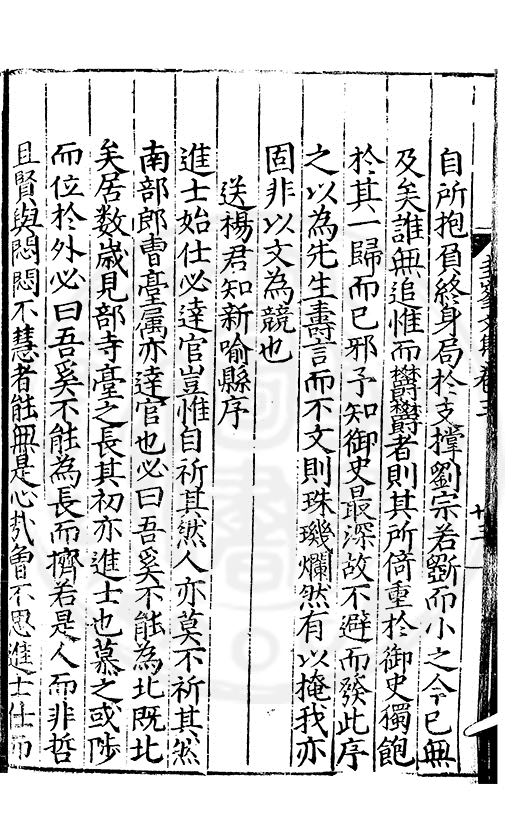 自所抱負終身局於支撑劉宗若斵而小之今已無
及矣誰無追惟而欝欝者則其所倚重於御史獨飽
於其一歸而已邪予知御史最深故不避而發此序
之以為先生夀言而不文則珠璣爛然有以掩我亦
固非以文為競也
送楊君知新喻縣序
進士始仕必達官豈惟自祈其然人亦莫不祈其然
南部郎曹臺属亦達官也必曰吾奚不能為北既北
矣居数歲見部寺臺之長其初亦進士也慕之或陟
而位於外必曰吾奚不能為長而擠若是人而非哲
且賢與悶悶不慧者能無是心㢤曾不思進士仕而